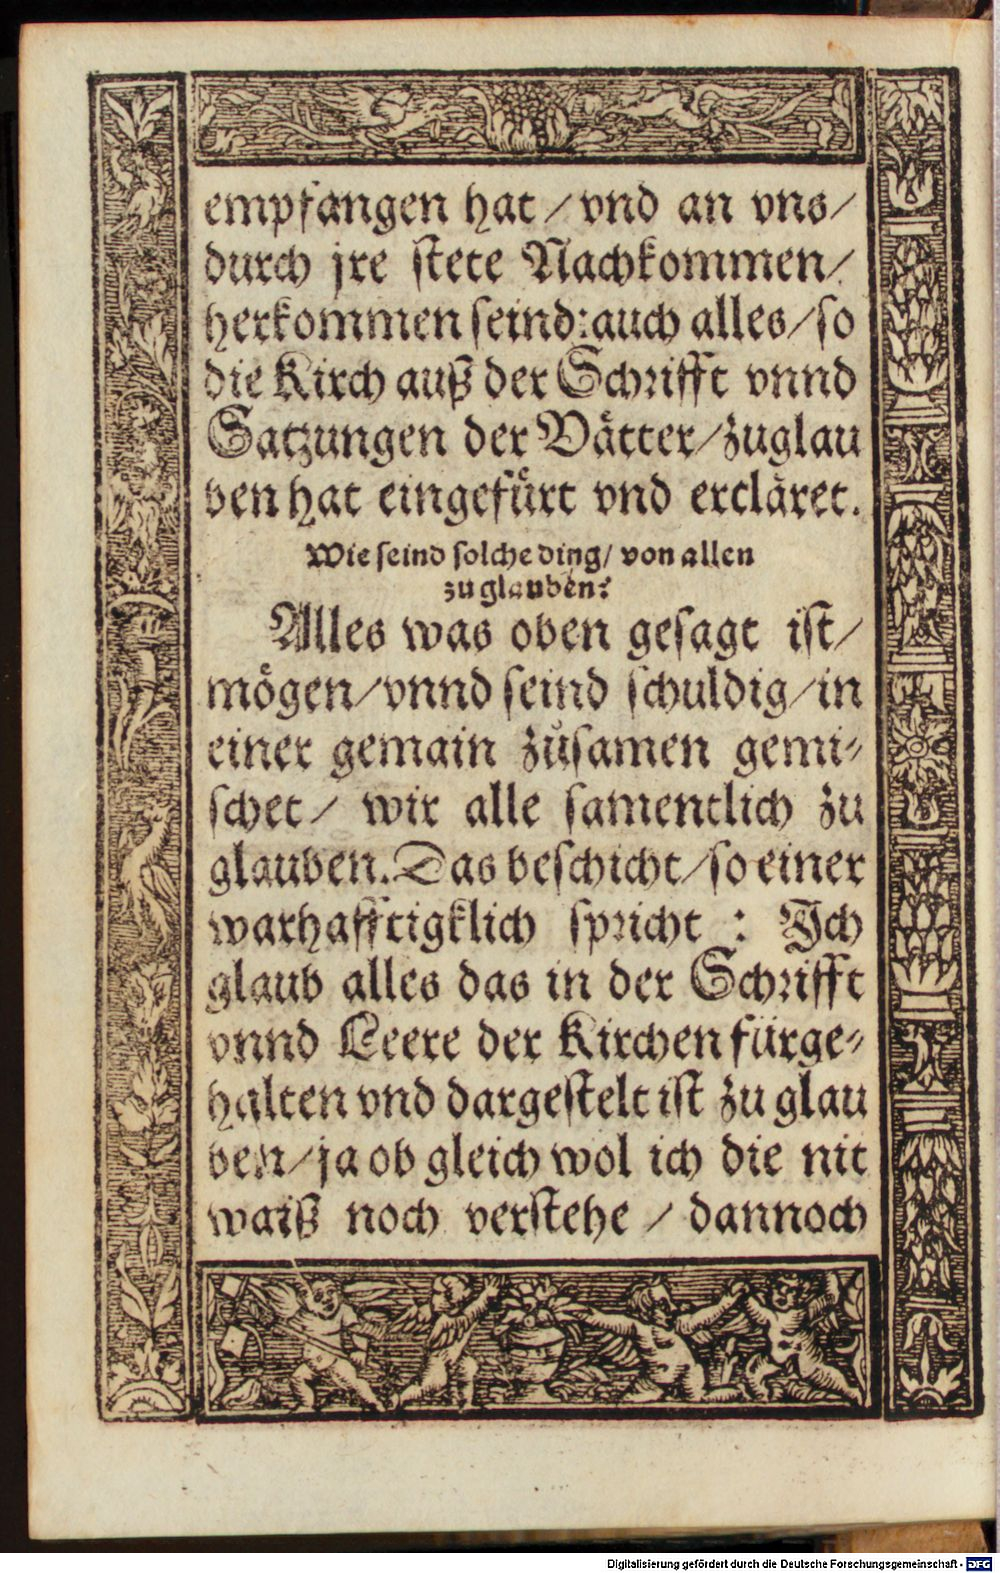 empfangen hat / vnd an vns /
durch jre stete Nachkommen /
herkommen seind: auch alles / so
die Kirch auß der Schrifft vnnd
Satzungen der Vätter / zuglau
ben hat eingefürt vnd ercläret.
Wie seind solche ding / von allen
zu glauben?
Alles was oben gesagt ist /
mögen / vnnd seind schuldig / in
einer gemain zůsamen gemi-
schet / wir alle samentlich zu
glauben. Das beschicht / so einer
warhafftigklich spricht : Ich
glaub alles das in der Schrifft
vnnd Leere der Kirchen fürge-
halten vnd dargestelt ist zu glau
ben / ja ob gleich wol ich die nit
waiß noch verstehe / dannoch
Digitalisierung gefördert durch die Deutsche Forschungsgemeinschaft - DFG